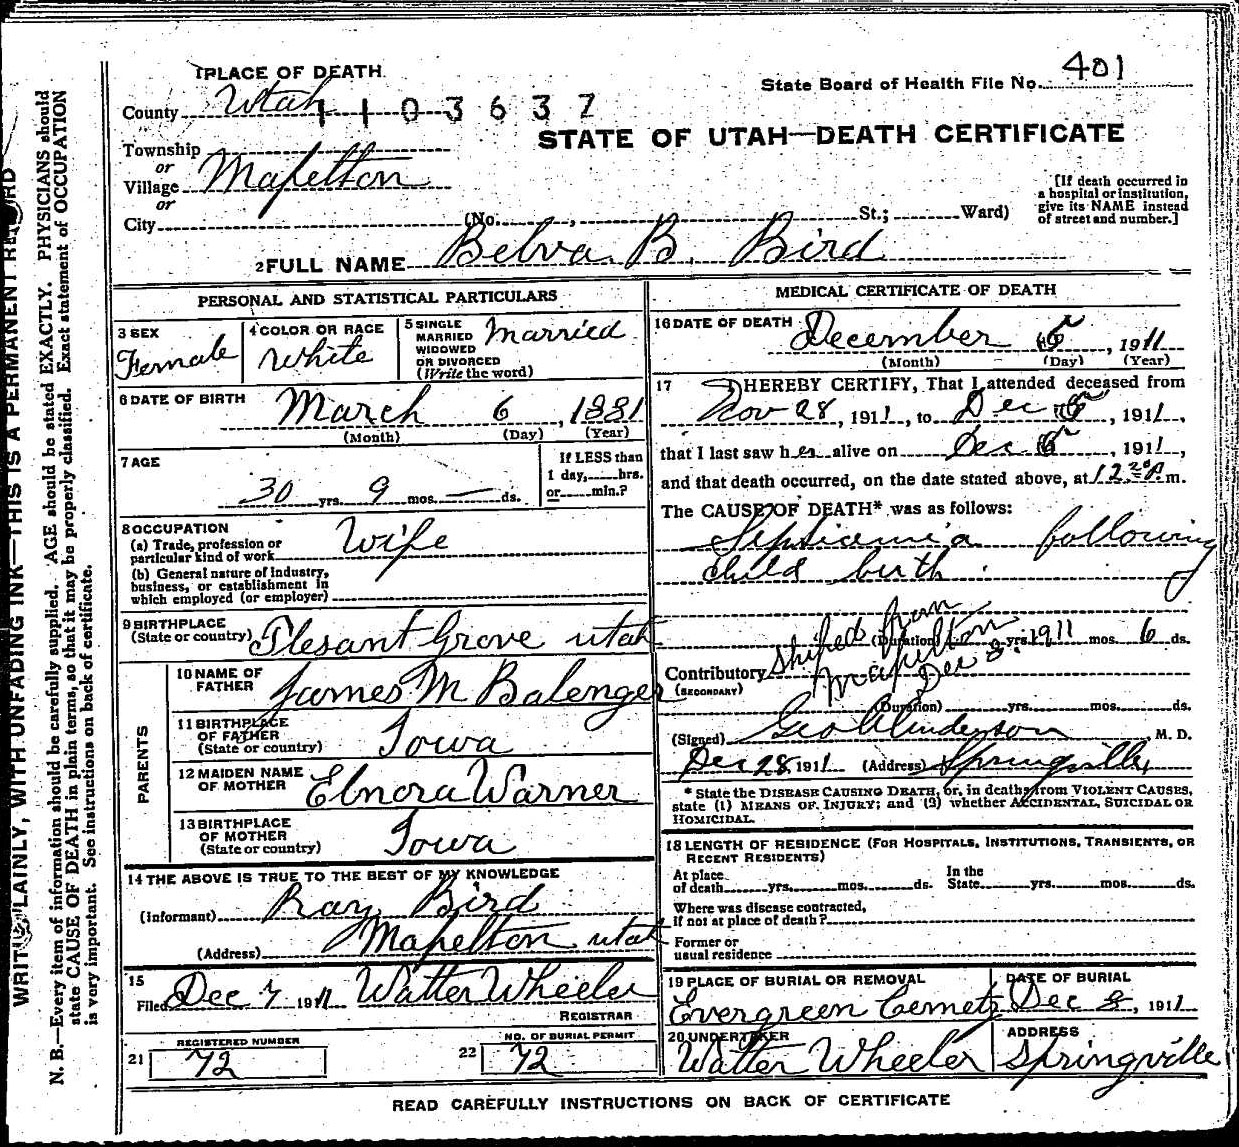 1 PLACE OF DEATH
State Board of Health File No. 401
County Utah
1 1 0 3 6 3 7
STATE OF UTAH—DEATH CERTIFICATE
Township
or
Village Mapelton
or
City (No. , St.; Ward)
[If death occurred in
a hospital or institution,
give its NAME instead
of street and number.]
2 FULL NAME Belva B. Bird
PERSONAL AND STATISTICAL PARTICULARS
3 SEX
Female
4 COLOR OR RACE
White
5 SINGLE
MARRIED
WIDOWED
OR DIVORCED
(Write the word)
Married
6 DATE OF BIRTH
March 6, 1881
(Month) (Day) (Year)
7 AGE
30 yrs. 9 mos. — ds.
If LESS than
1 day, hrs.
or min.?
8 OCCUPATION
(a) Trade, profession or
particular kind of work Wife
(b) General nature of industry,
business, or establishment in
which employed (or employer)
9 BIRTHPLACE
(State or country) Plesant Grove utah
PARENTS
10 NAME OF
FATHER James M Balenger
11 BIRTHPLACE
OF FATHER
(State or country) Iowa
12 MAIDEN NAME
OF MOTHER Elnora Warner
13 BIRTHPLACE
OF MOTHER
(State or country) Iowa
14 THE ABOVE IS TRUE TO THE BEST OF MY KNOWLEDGE
(Informant) Ray Bird
(Address) Mapelton utah
15
Filed Dec 7 1911 Walter Wheeler
REGISTRAR
REGISTERED NUMBER
21 72
NO. OF BURIAL PERMIT
22 72
MEDICAL CERTIFICATE OF DEATH
16 DATE OF DEATH December , 1911
(Month) (Day) (Year)
17 I HEREBY CERTIFY, That I attended deceased from
Nov 28, 1911, to Dec , 1911,
that I last saw her alive on Dec , 1911,
and that death occurred, on the date stated above, at 12 P. m.
The CAUSE OF DEATH* was as follows:
Septicemia following
child birth
(Duration) yrs. 1911 mos. 6 ds.
Contributory
(SECONDARY)
Shiped from
Mapelton
Dec 8
(Duration) yrs. mos. ds.
(Signed) Geo Anderson, M. D.
Dec 28, 1911 (Address) Springville
* State the DISEASE CAUSING DEATH, or, in deaths from VIOLENT CAUSES,
state (1) MEANS OF INJURY; and (2) whether ACCIDENTAL, SUICIDAL OR
HOMICIDAL.
18 LENGTH OF RESIDENCE (FOR HOSPITALS, INSTITUTIONS, TRANSIENTS, OR
RECENT RESIDENTS)
At place
of death yrs. mos. ds.
In the
State yrs. mos. ds.
Where was disease contracted,
if not at place of death?
Former or
usual residence
19 PLACE OF BURIAL OR REMOVAL
Evergreen Cemety
DATE OF BURIAL
Dec 8, 1911
20 UNDERTAKER
Walter Wheeler
ADDRESS
Springville
READ CAREFULLY INSTRUCTIONS ON BACK OF CERTIFICATE
WRITE PLAINLY, WITH UNFADING INK—THIS IS A PERMANENT RECORD
N. B.—Every item of information should be carefully supplied. AGE should be stated EXACTLY. PHYSICIANS should
state CAUSE OF DEATH in plain terms, so that it may be properly classified. Exact statement of OCCUPATION
is very important. See instructions on back of certificate.